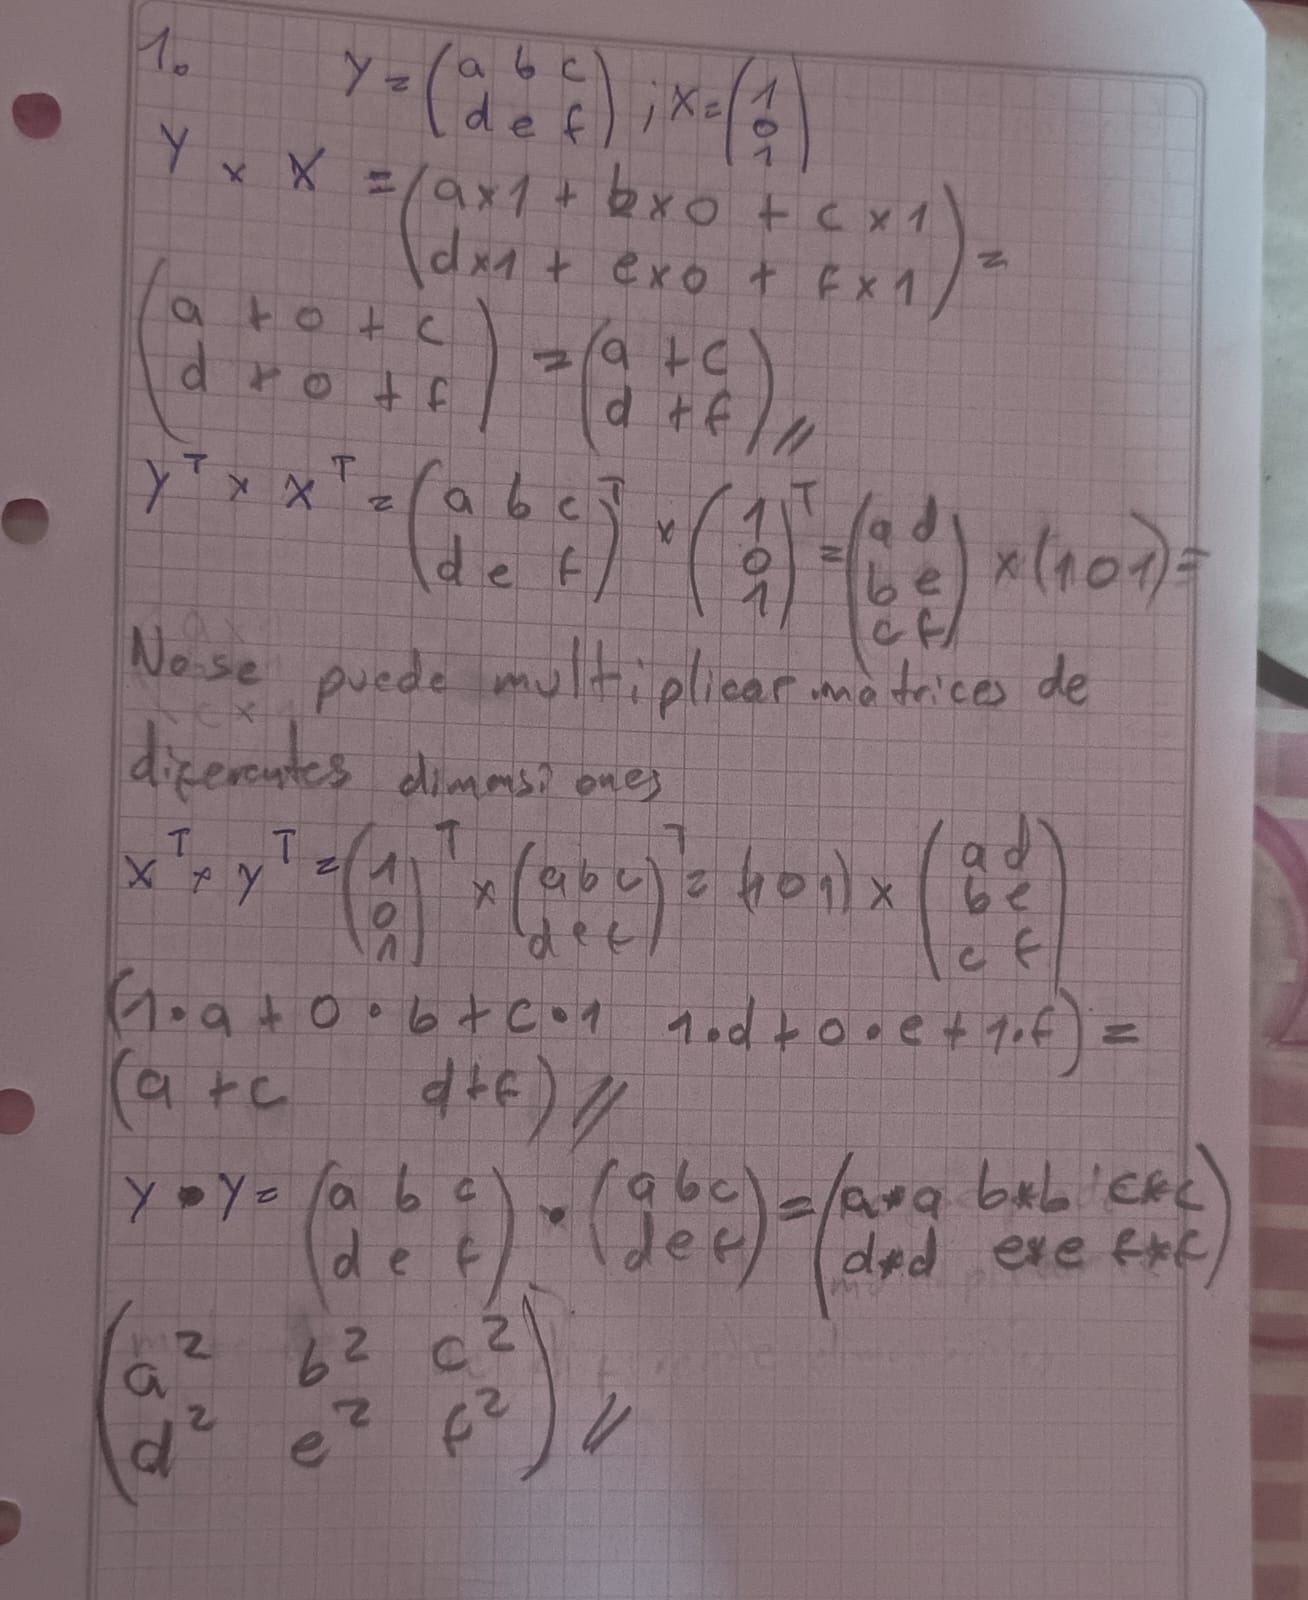 1.  Y = (a b c / d e f) ; X = (1 / 0 / 1)
Y × X = (a×1 + b×0 + c×1 / d×1 + e×0 + f×1) =
(a + 0 + c / d + 0 + f) = (a + c / d + f)//
Y^T × X^T = (a b c / d e f)^T × (1 / 0 / 1)^T = (a d / b e / c f) × (1 0 1) =
No se puede multiplicar matrices de
diferentes dimensiones
X^T × Y^T = (1 / 0 / 1)^T × (a b c / d e f)^T = (1 0 1) × (a d / b e / c f)
(1·a + 0·b + c·1   1·d + 0·e + 1·f) =
(a + c   d + f)//
Y • Y = (a b c / d e f) • (a b c / d e f) = (a*a b*b c*c / d*d e*e f*f)
(a² b² c² / d² e² f²)//